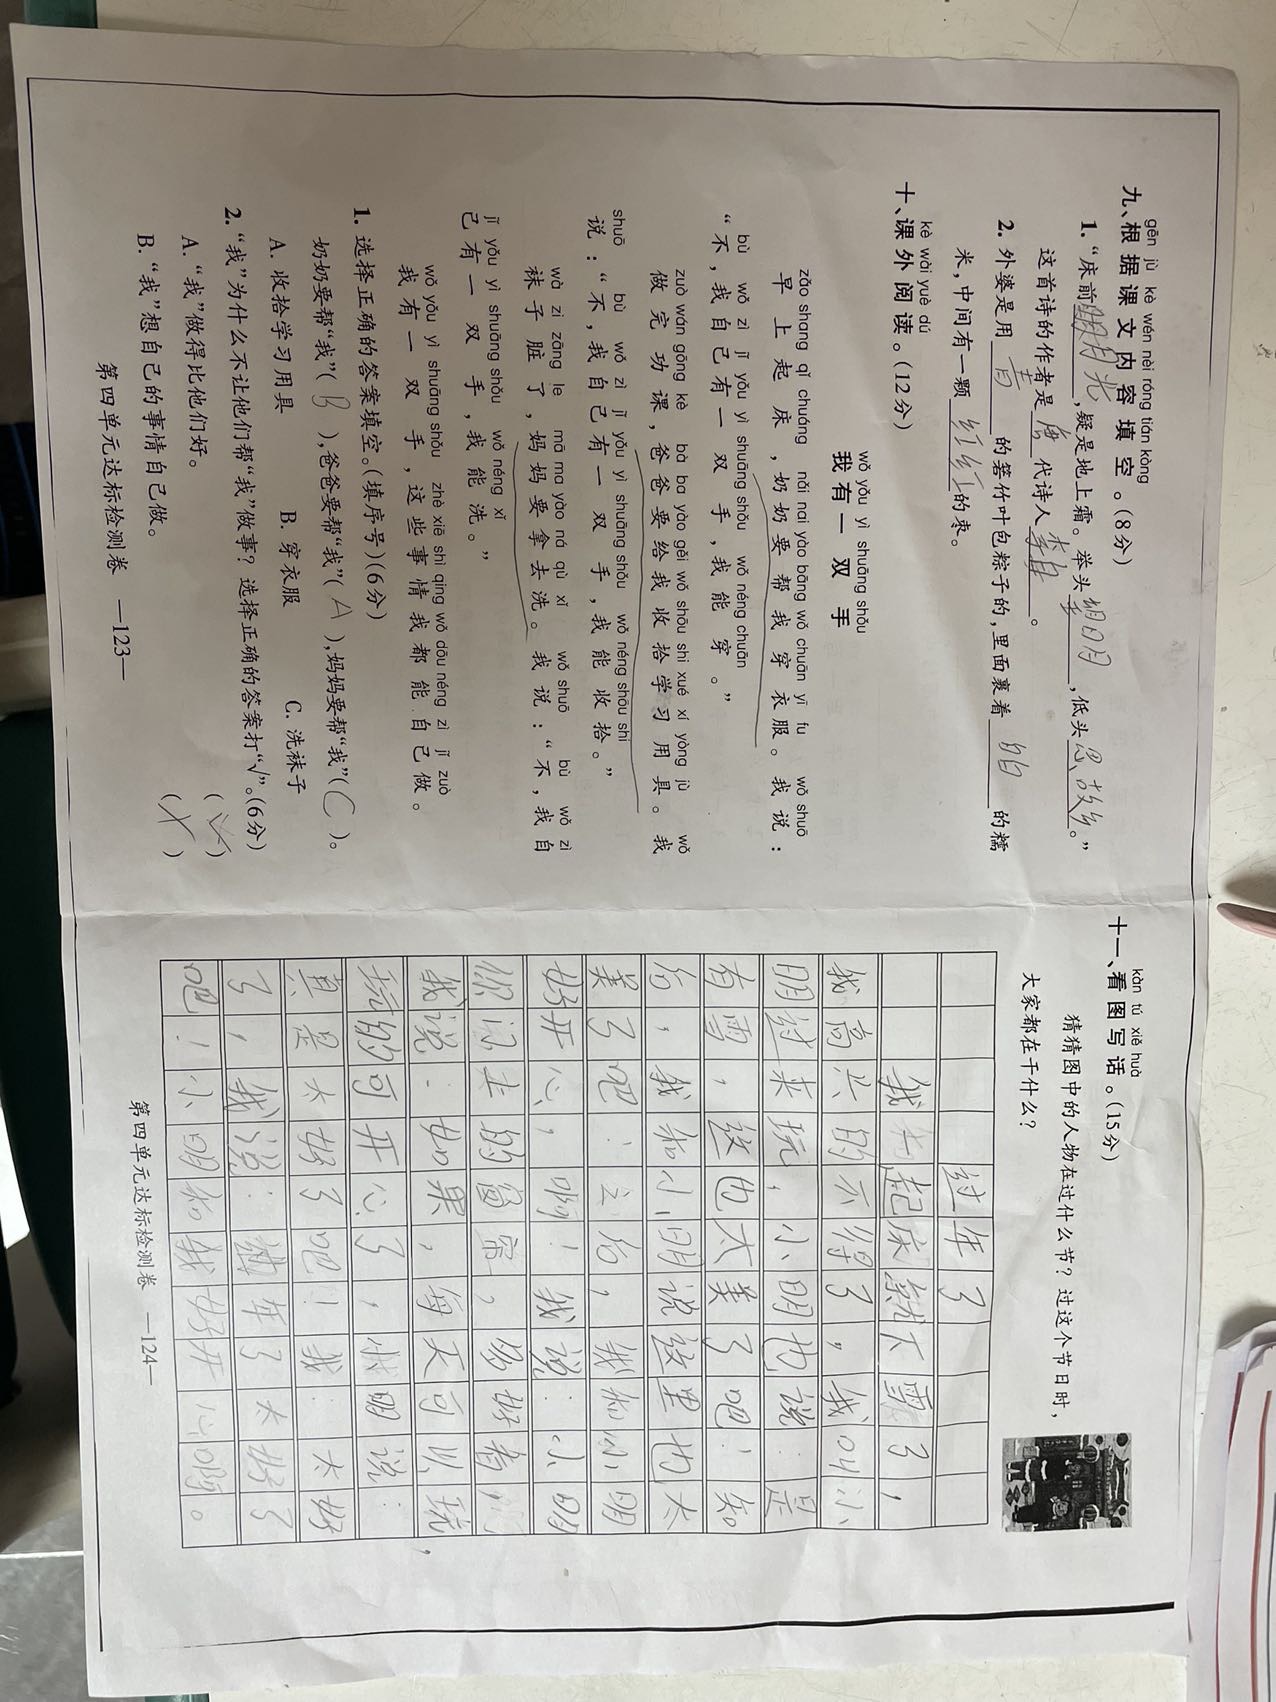 gēn jù kè wén nèi róng tián kòng
九、根据课文内容填空。(8分)
1. “床前明月光,疑是地上霜。举头望明月,低头思故乡。”
这首诗的作者是唐代诗人李白。
2. 外婆是用青的箬竹叶包粽子的,里面裹着白白的糯
米,中间有一颗红红的枣。
kè wài yuè dú
十、课外阅读。(12分)
wǒ yǒu yì shuāng shǒu
我有一双手
zǎo shang qǐ chuáng nǎi nai yào bāng wǒ chuān yī fu wǒ shuō
早上起床,奶奶要帮我穿衣服。我说:
bù wǒ zì jǐ yǒu yì shuāng shǒu wǒ néng chuān
“不,我自己有一双手,我能穿。”
zuò wán gōng kè bà ba yào gěi wǒ shōu shi xué xí yòng jù wǒ
做完功课,爸爸要给我收拾学习用具。我
shuō bù wǒ zì jǐ yǒu yì shuāng shǒu wǒ néng shōu shi
说:“不,我自己有一双手,我能收拾。”
wà zi zāng le mā ma yào ná qù xǐ wǒ shuō bù wǒ zì
袜子脏了,妈妈要拿去洗。我说:“不,我自
jǐ yǒu yì shuāng shǒu wǒ néng xǐ
己有一双手,我能洗。”
wǒ yǒu yì shuāng shǒu zhè xiē shì qing wǒ dōu néng zì jǐ zuò
我有一双手,这些事情我都能自己做。
1. 选择正确的答案填空。(填序号)(6分)
奶奶要帮“我”(B),爸爸要帮“我”(A),妈妈要帮“我”(C)。
A. 收拾学习用具 B. 穿衣服 C. 洗袜子
2. “我”为什么不让他们帮“我”做事?选择正确的答案打“√”。(6分)
A. “我”做得比他们好。 ( )
B. “我”想自己的事情自己做。 ( )
第四单元达标检测卷 —123—
kàn tú xiě huà
十一、看图写话。(15分)
猜猜图中的人物在过什么节?过这个节日时,
大家都在干什么?
过年了
我起床就下雪了,
我高兴的不得了,我叫小
明过来玩,小明也说:是
有雪,这也太美了吧!知
后,我和小明说这里也太
美了吧!之后,我和小明
好开心,啊!我说:小明
你汉去的窗帘,多好看
我说:如果,每天可以玩
玩的可开心了,明说:
真是太好了吧!我:太好
了,我说:年了太好了
吧!小明和我好开心啊。
第四单元达标检测卷 —124—